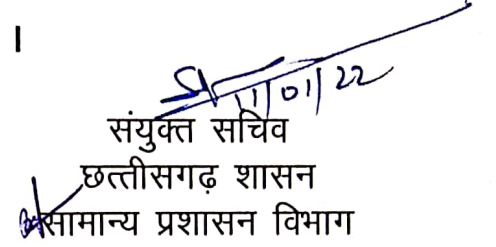 ।
11/01/22
संयुक्त सचिव
छत्तीसगढ़ शासन
सामान्य प्रशासन विभाग